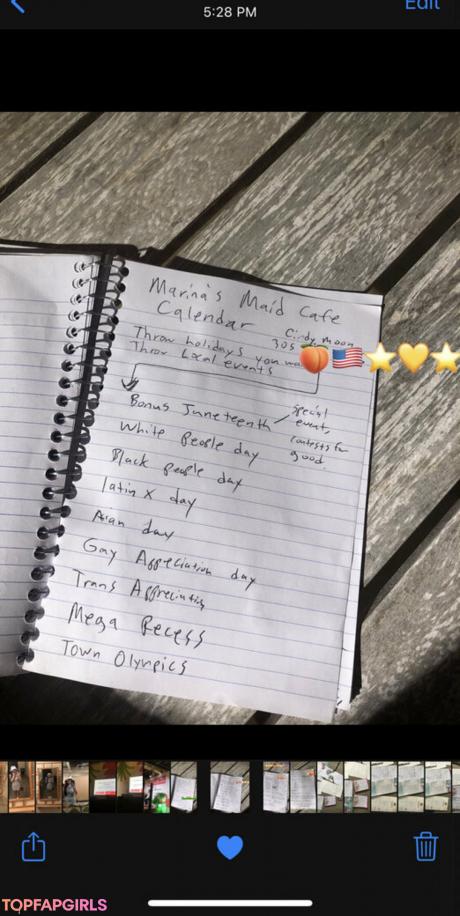 5:28 PM
Edit
Marina's Maid Cafe
Calendar
Cindy moon
305
Throw holidays you
Throw Local events
Bonus Juneteenth
special
event,
contests for
good
White people day
Black people day
latin x day
Asian day
Gay Appreciation day
Trans Appreciation
Mega Recess
Town Olympics
TOPFAPGIRLS